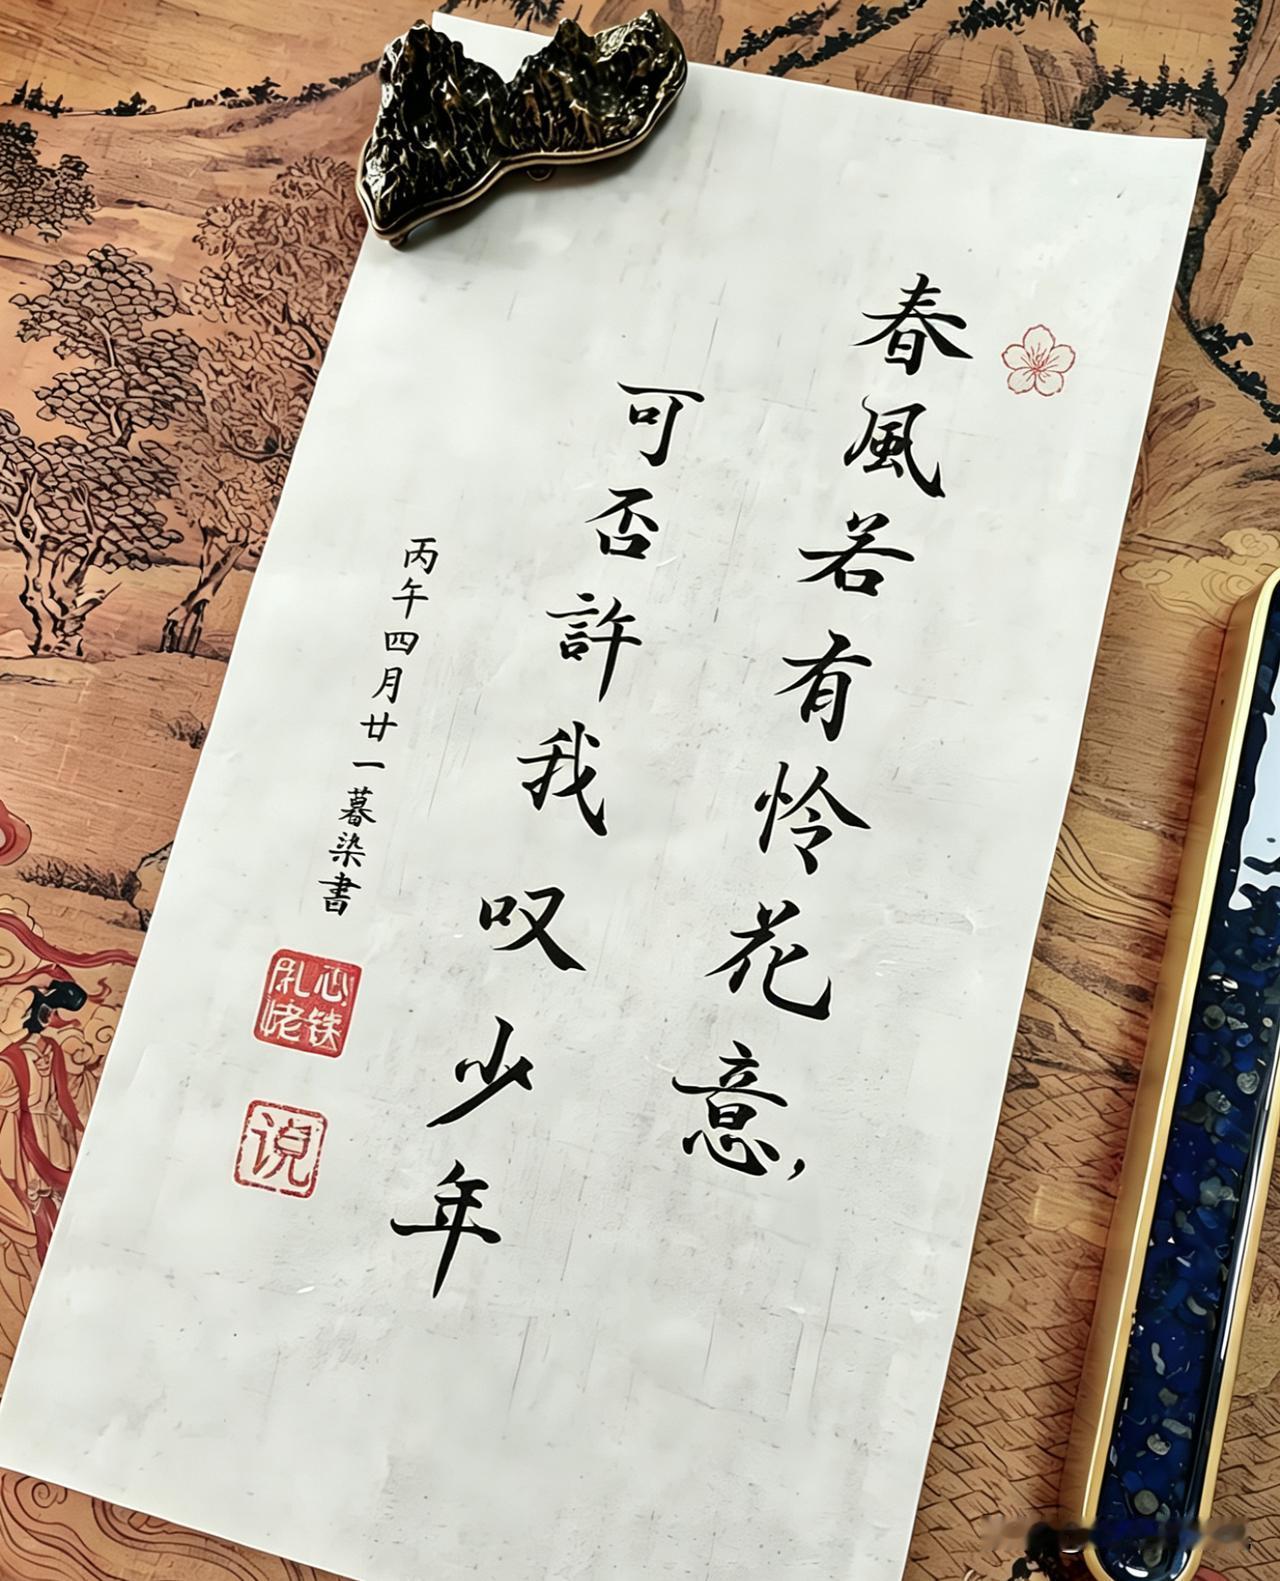 春風若有怜花意，
可否許我叹少年
丙午四月廿一暮染書
说